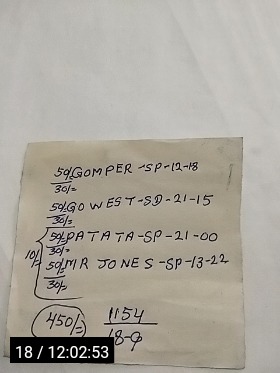 50/- GOMPER-SP-12-18
30/-
50/- GO WEST-SD-21-15
30/-
50/- PATATA-SP-21-00
30/-
10/-
50/- MR JONES-SP-13-22
30/-
450/-
1154
18-9
18 / 12:02:53